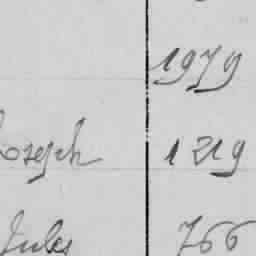 1979
Joseph 1219
Jules 766